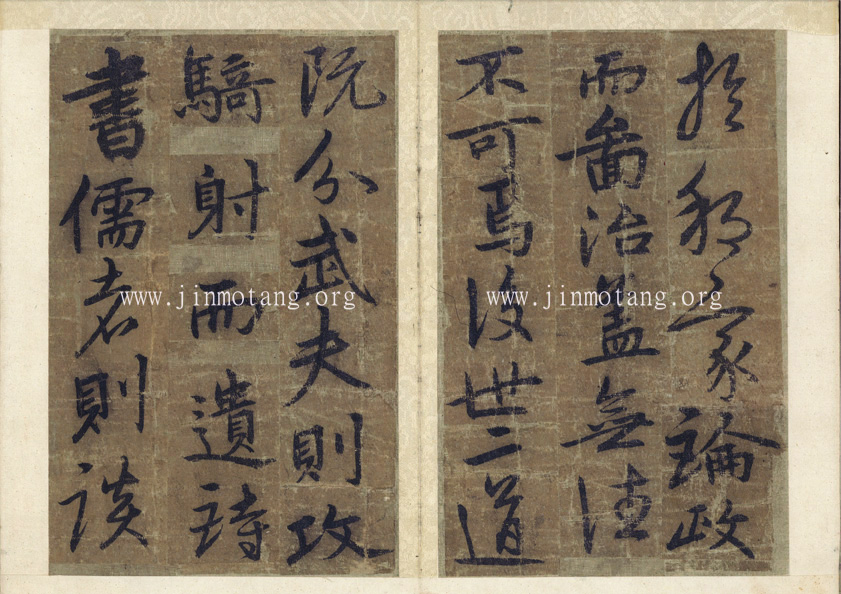 於邦家論政
而啚治蓋無往
不可焉後世二道
既分武夫則攻
騎射而遺詩
書儒者則談
www.jinmotang.org
www.jinmotang.org